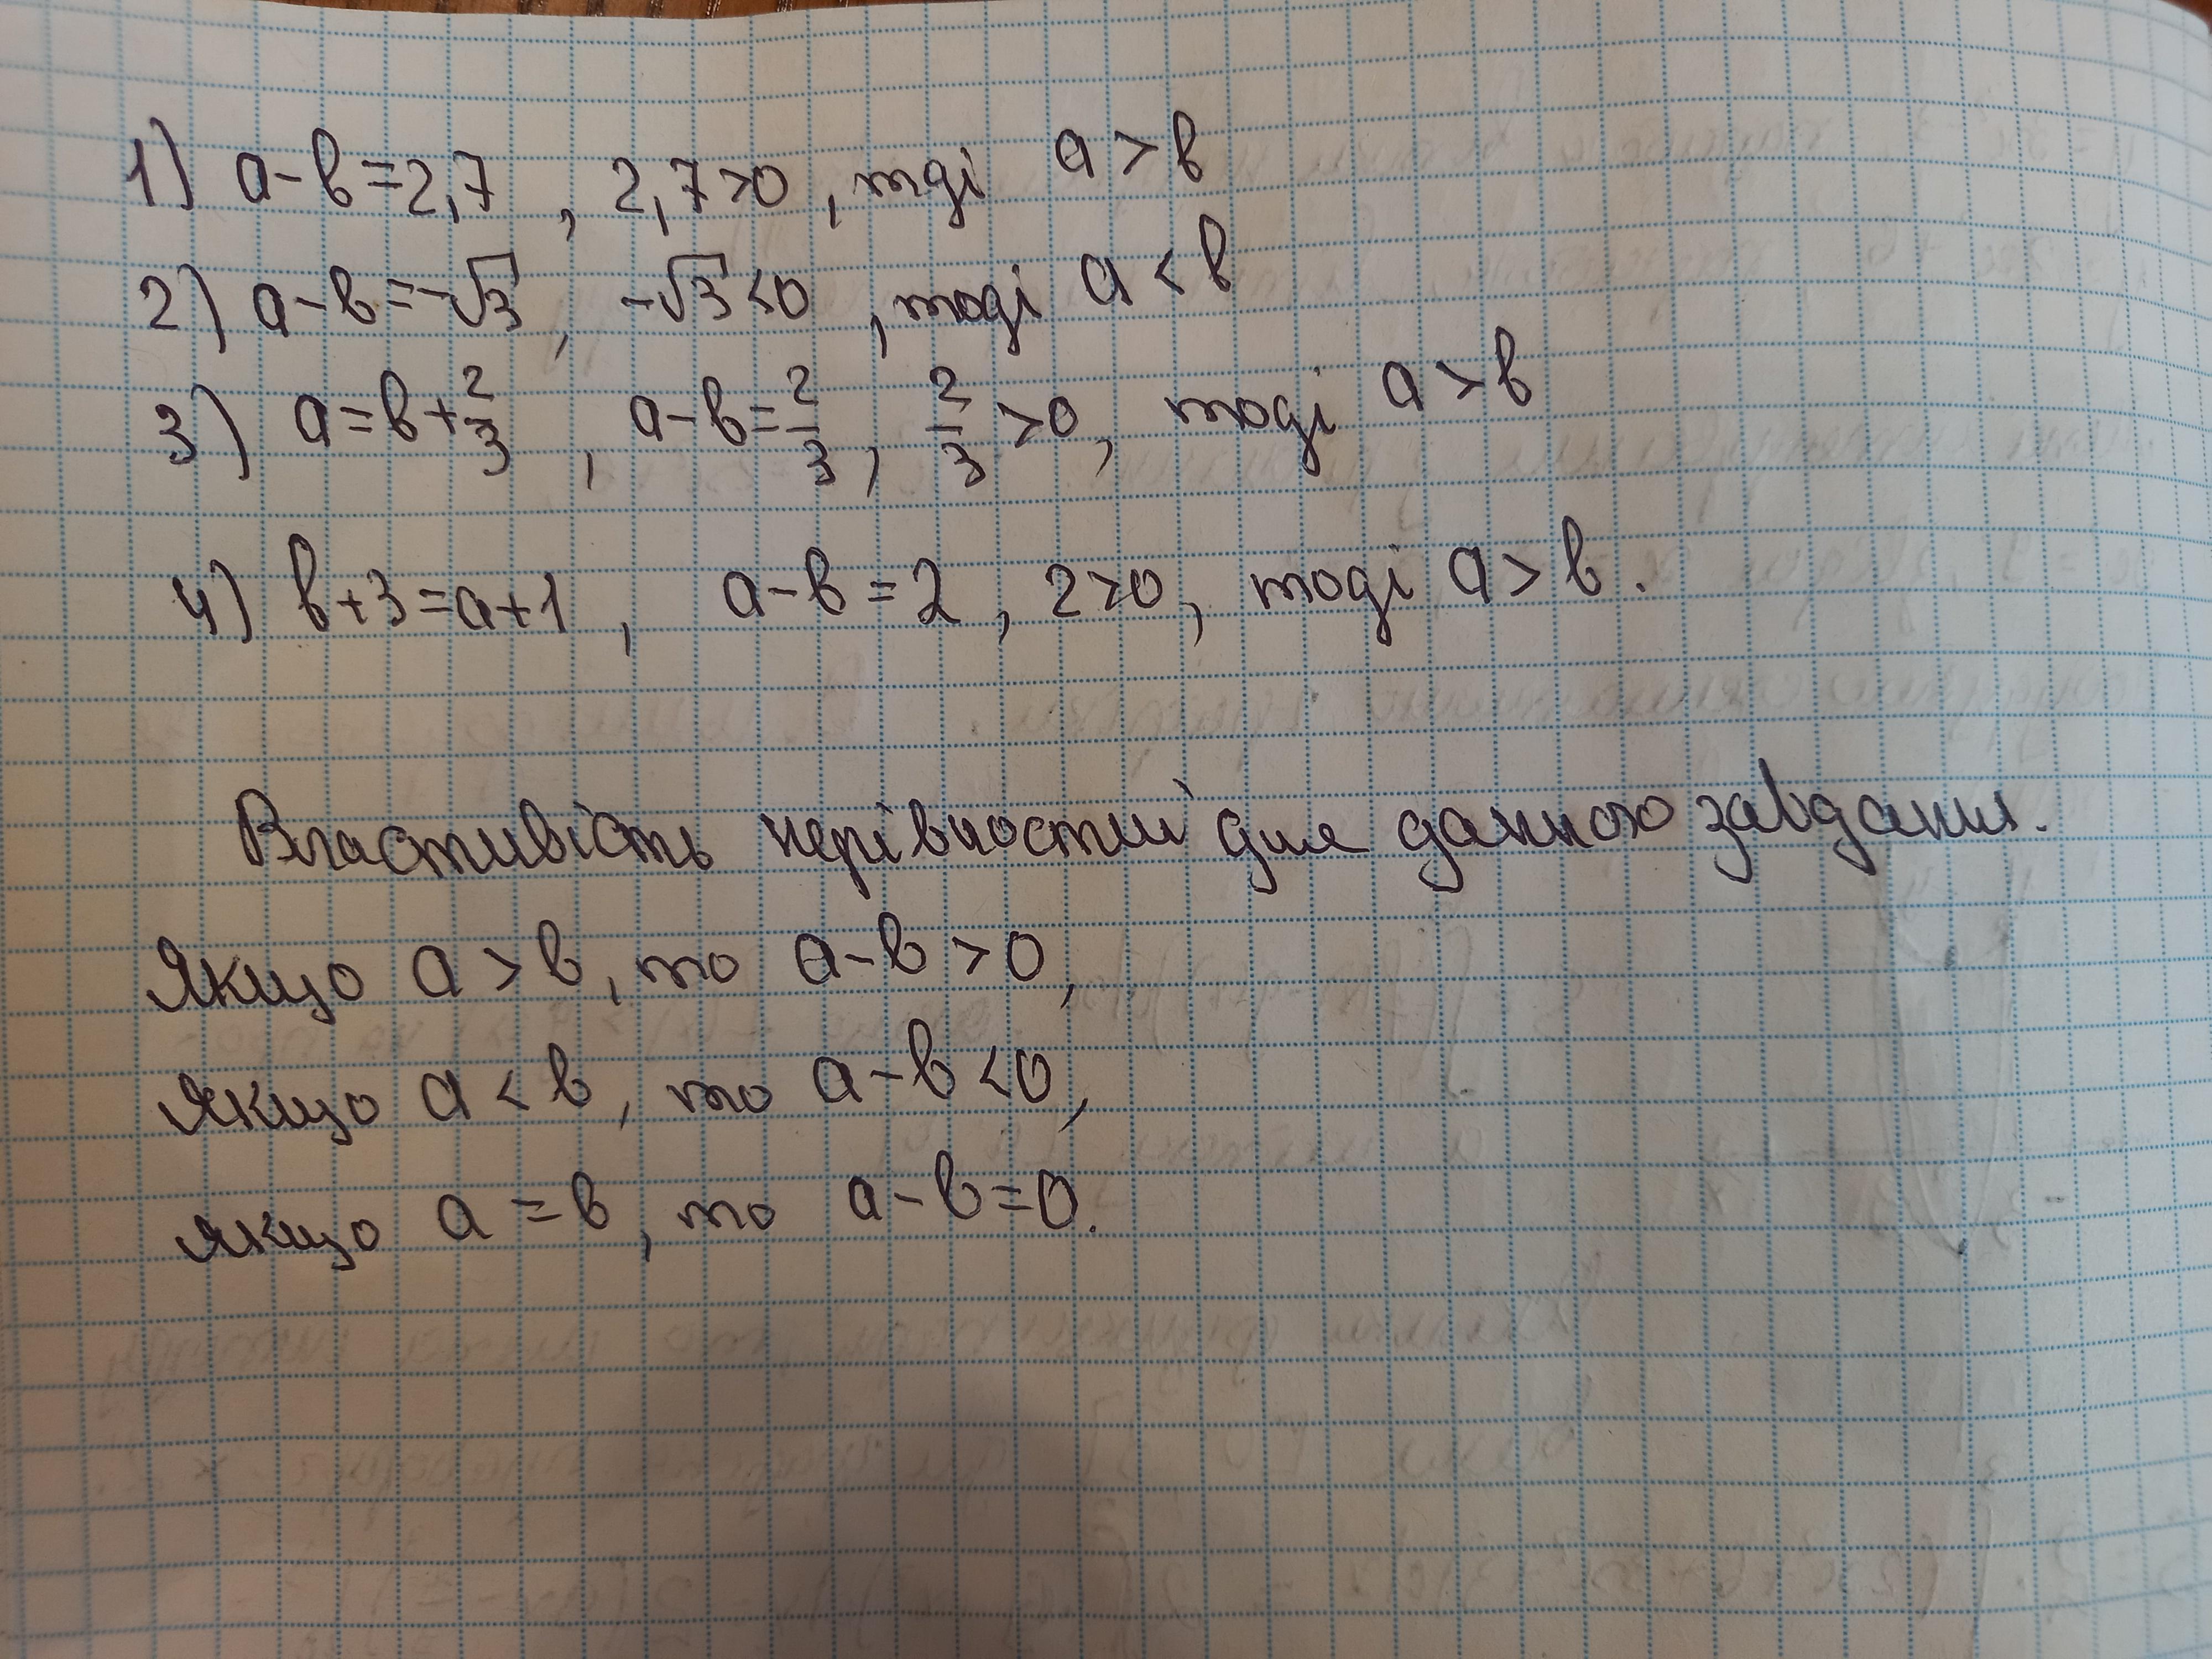 1) a-b=2,7 , 2,7>0 , тді a>b
2) a-b=-√3 , -√3<0 , тоді a<b
3) a=b+2/3 , a-b=2/3 , 2/3>0, тоді a>b
4) b+3=a+1 , a-b=2 , 2>0, тоді a>b.
Властивість нерівностей для данного завдання.
Якщо a>b, то a-b>0,
якщо a<b, то a-b<0,
якщо a=b, то a-b=0.